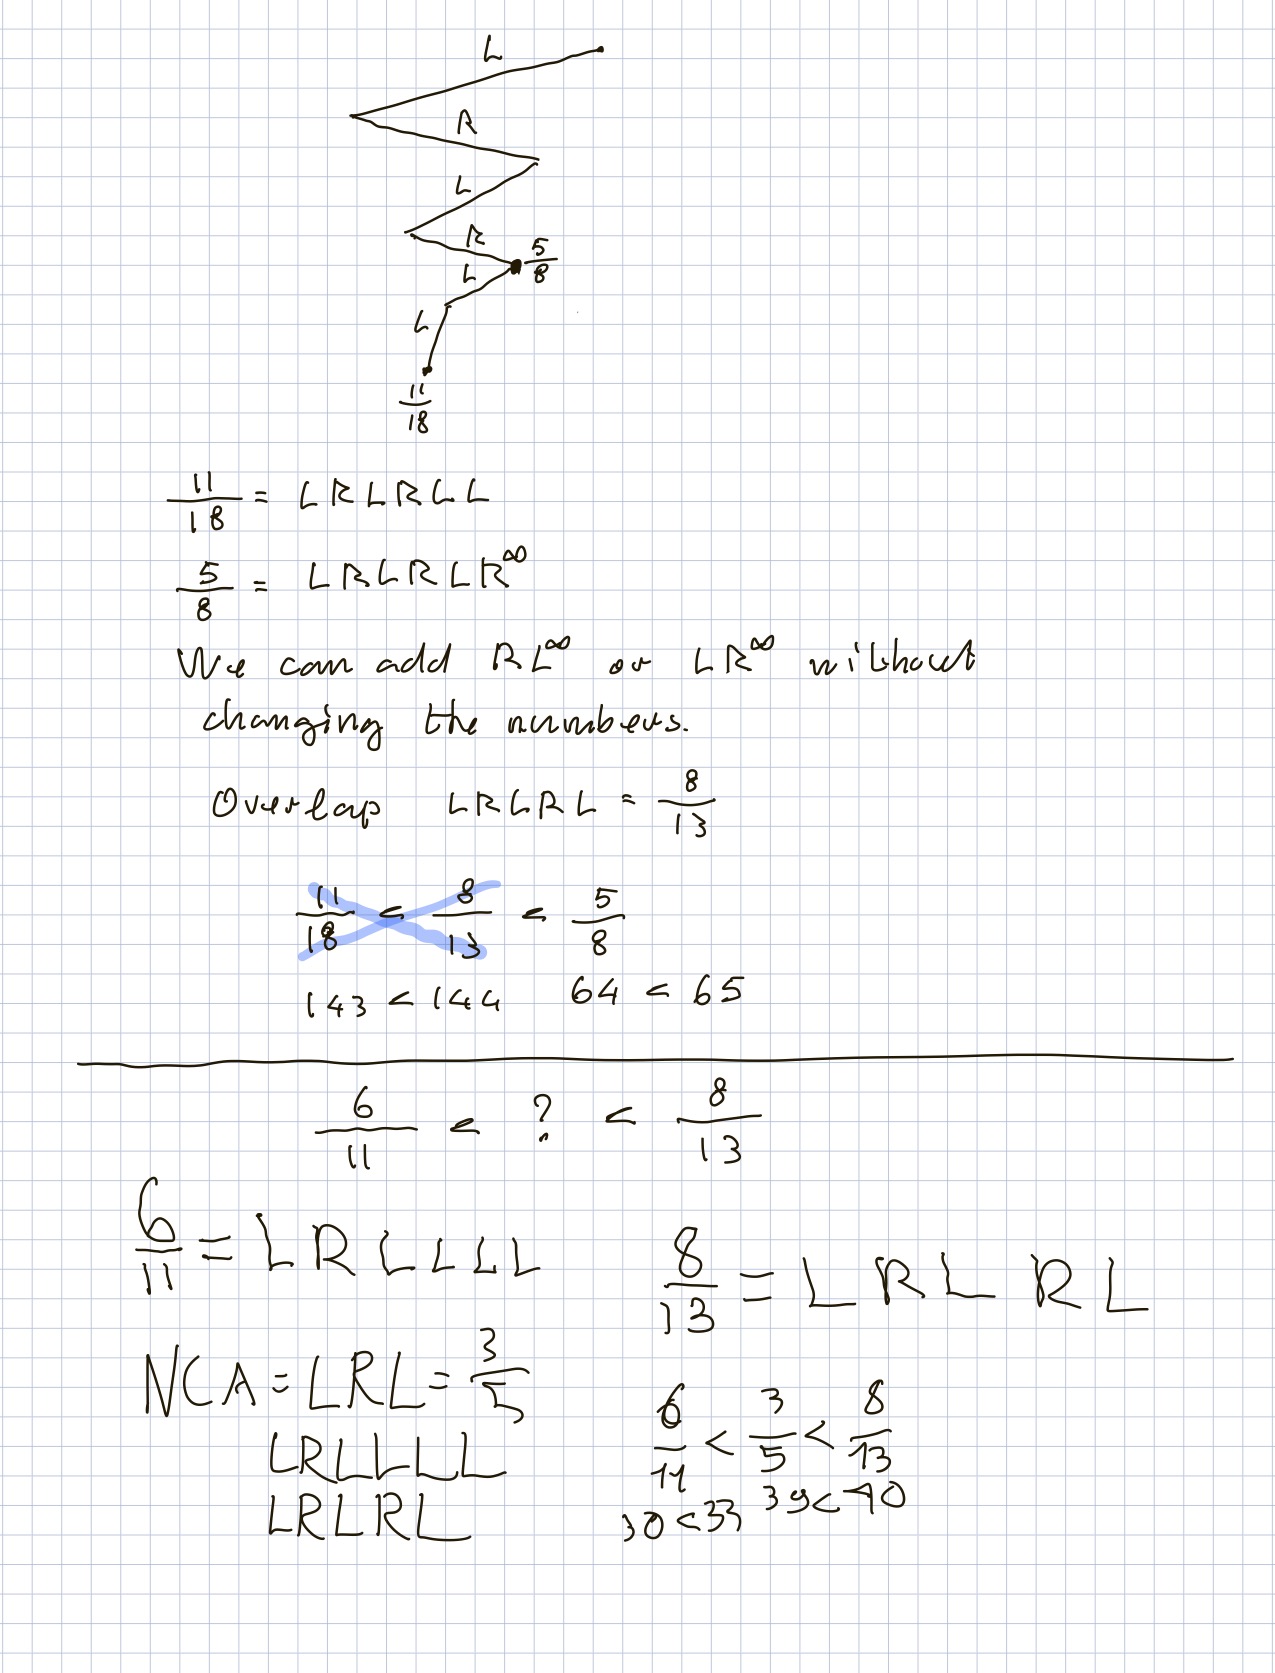 L
R
L
R
5/8
L
L
11/18
11/18 = LRLRLL
5/8 = LRLRLR^∞
We can add RL^∞ or LR^∞ without
changing the numbers.
Overlap LRLRL = 8/13
11/18 < 8/13 < 5/8
143 < 144 64 < 65
6/11 < ? < 8/13
6/11 = LRLLLL 8/13 = LRLRL
NCA = LRL = 3/5
6/11 < 3/5 < 8/13
LRLLLL
30 < 33 39 < 40
LRLRL